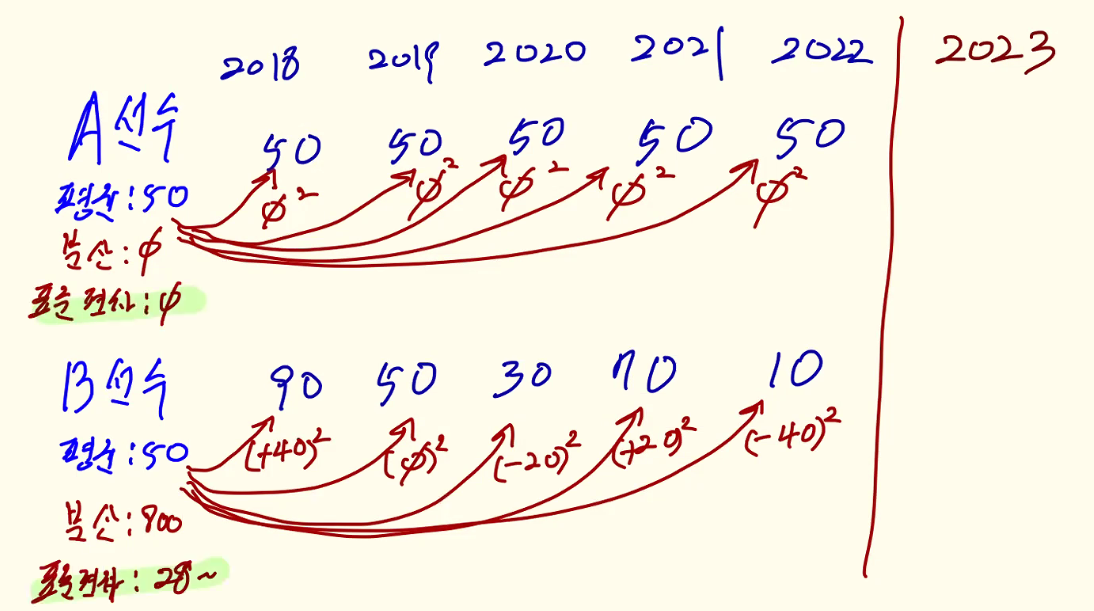 2018 2019 2020 2021 2022 2023
A선수 50 50 50 50 50
평균:50 φ² φ² φ² φ² φ²
분산:φ
표준편차:φ
B선수 90 50 30 70 10
평균:50 (+40)² (φ)² (-20)² (+20)² (-40)²
분산:800
표준편차:28~